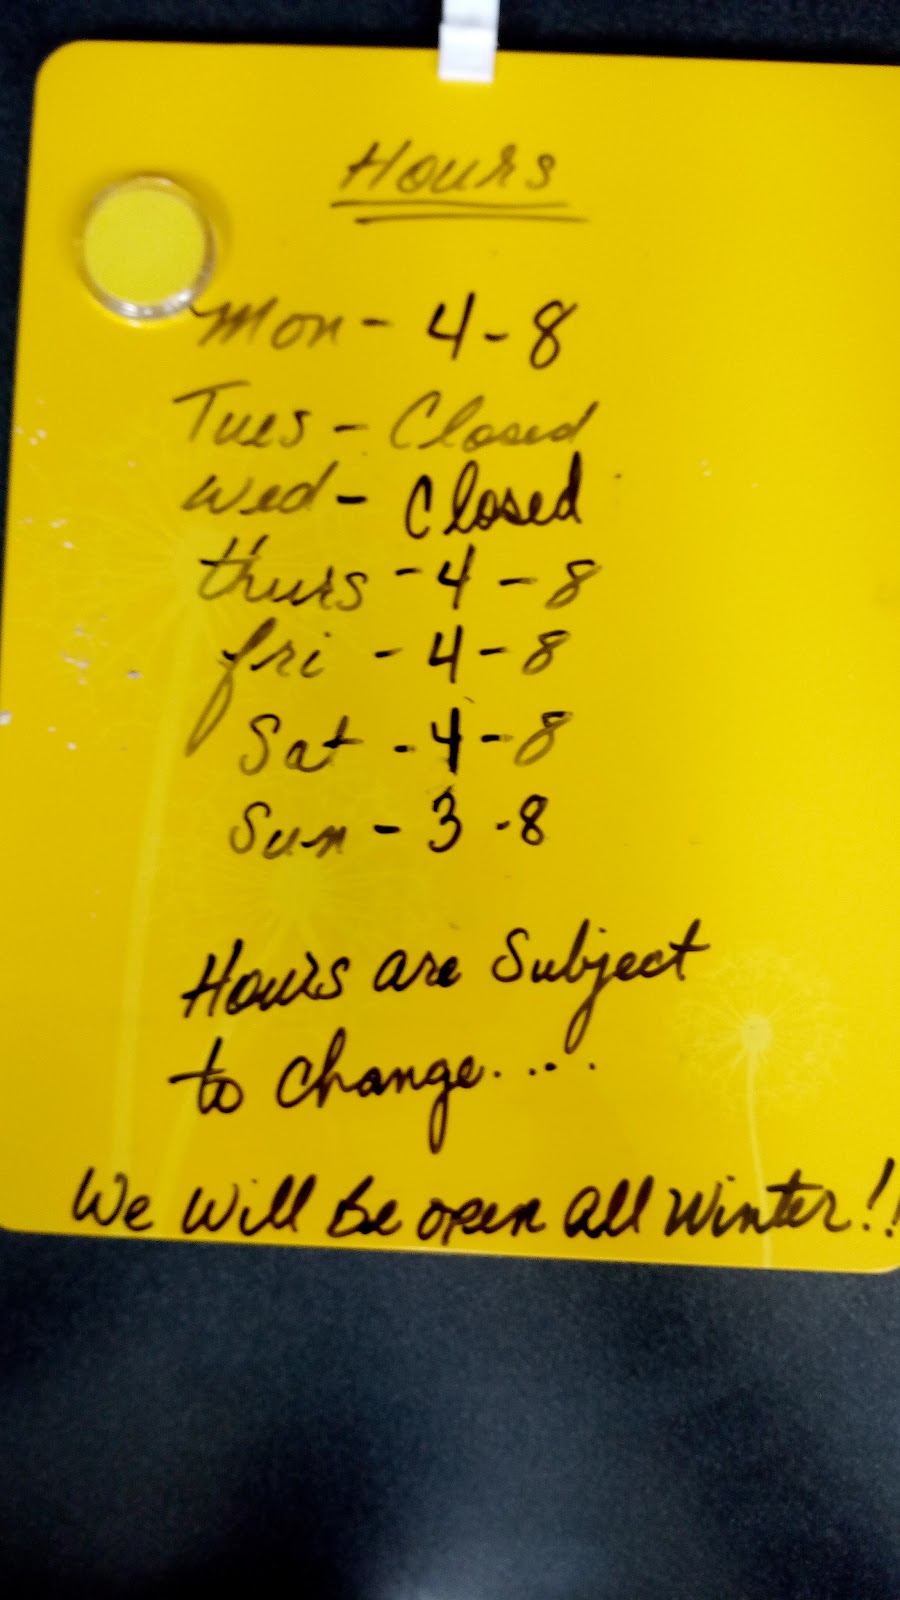 Hours
Mon - 4-8
Tues - Closed
Wed - Closed
thurs - 4 - 8
fri - 4-8
Sat - 4-8
Sun - 3 -8
Hours are Subject
to change....
We Will Be open all Winter!!